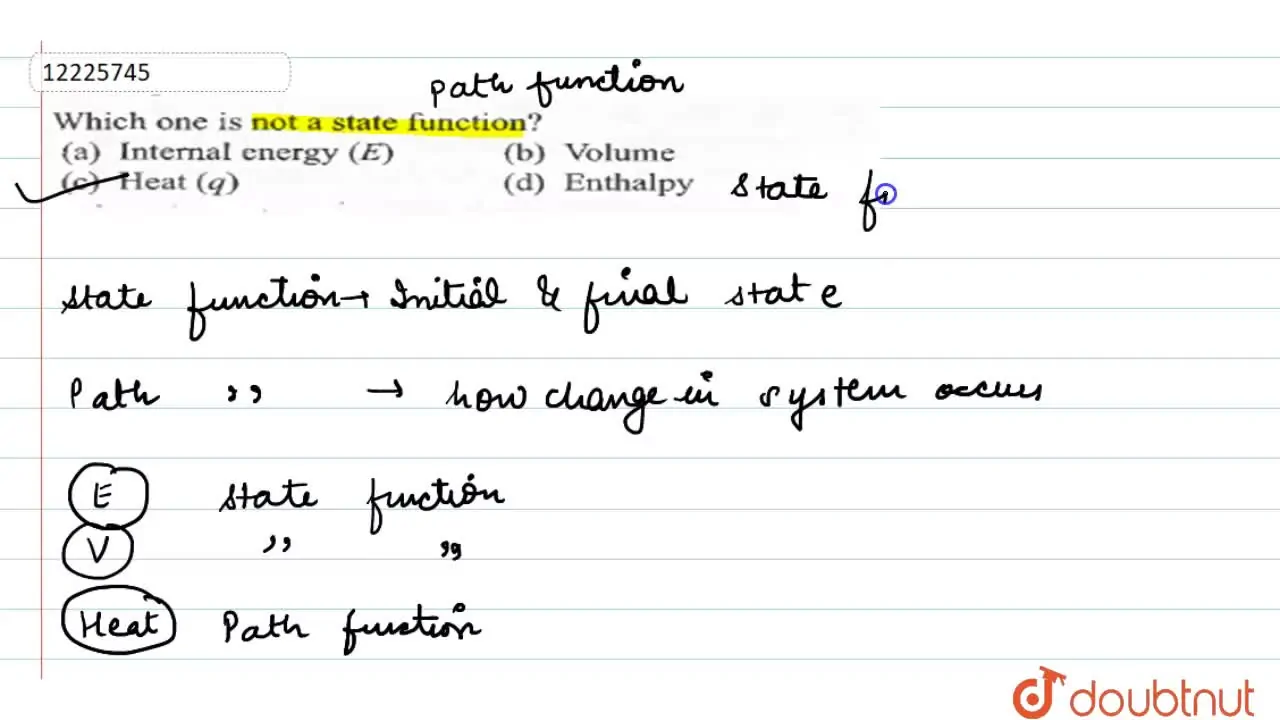 12225745
Path function
Which one is not a state function?
(a) Internal energy (E) (b) Volume
(c) Heat (q) (d) Enthalpy state fn
State function → Initial & final state
Path ,, → how change in system occurs
E state function
V ,, ,,
Heat Path function
doubtnut